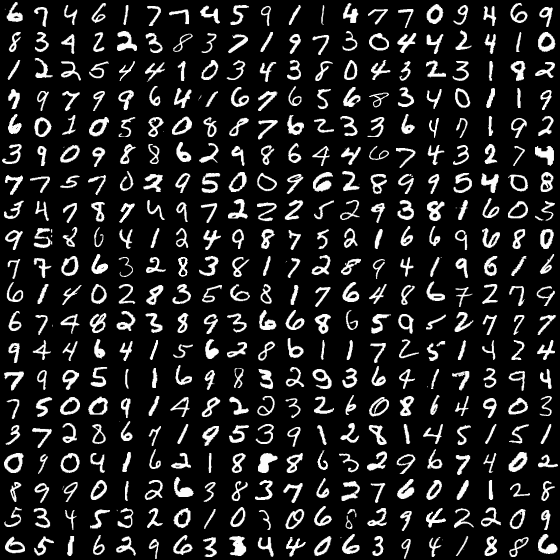 6 7 4 6 1 7 7 4 5 9 1 1 4 7 7 0 9 4 6 9
8 3 4 2 2 3 8 3 7 1 9 7 3 0 4 4 2 4 1 0
1 2 2 5 4 4 1 0 3 4 3 8 0 4 3 2 3 1 8 2
7 9 7 9 9 6 4 1 6 7 6 5 6 8 3 4 0 1 1 9
6 0 1 0 5 8 0 8 8 7 6 2 3 3 6 4 7 1 9 2
3 9 0 9 8 8 6 2 9 8 6 4 4 6 7 4 3 2 7 4
7 7 5 7 0 2 9 5 0 0 9 6 2 8 9 9 5 4 0 8
3 4 7 8 7 4 9 7 2 2 2 5 2 9 3 8 1 6 0 3
9 5 8 6 4 1 2 4 9 8 7 5 2 1 6 6 9 6 8 0
7 7 0 6 3 2 8 3 8 1 7 2 8 9 4 1 9 6 1 6
6 1 4 0 2 8 3 5 6 8 1 7 6 4 8 6 7 2 7 9
6 7 4 8 2 3 8 9 3 6 6 8 6 5 9 5 2 7 7 7
9 4 4 6 4 1 5 6 2 8 6 1 1 7 2 5 1 4 2 4
7 9 9 5 1 1 6 9 8 3 2 9 3 6 4 1 7 3 9 4
7 5 0 0 9 1 4 8 2 2 3 2 6 0 8 6 4 9 0 3
3 7 2 8 6 7 1 9 5 3 9 1 2 8 1 4 5 1 5 1
0 9 0 4 1 6 2 1 8 8 8 6 3 2 9 6 7 4 0 2
8 9 9 0 1 2 6 3 8 3 7 6 2 7 6 0 1 1 2 8
5 3 4 5 3 2 0 1 0 3 0 6 8 2 9 4 2 2 0 9
0 5 1 6 2 9 6 3 3 4 4 0 6 3 9 4 1 8 8 6